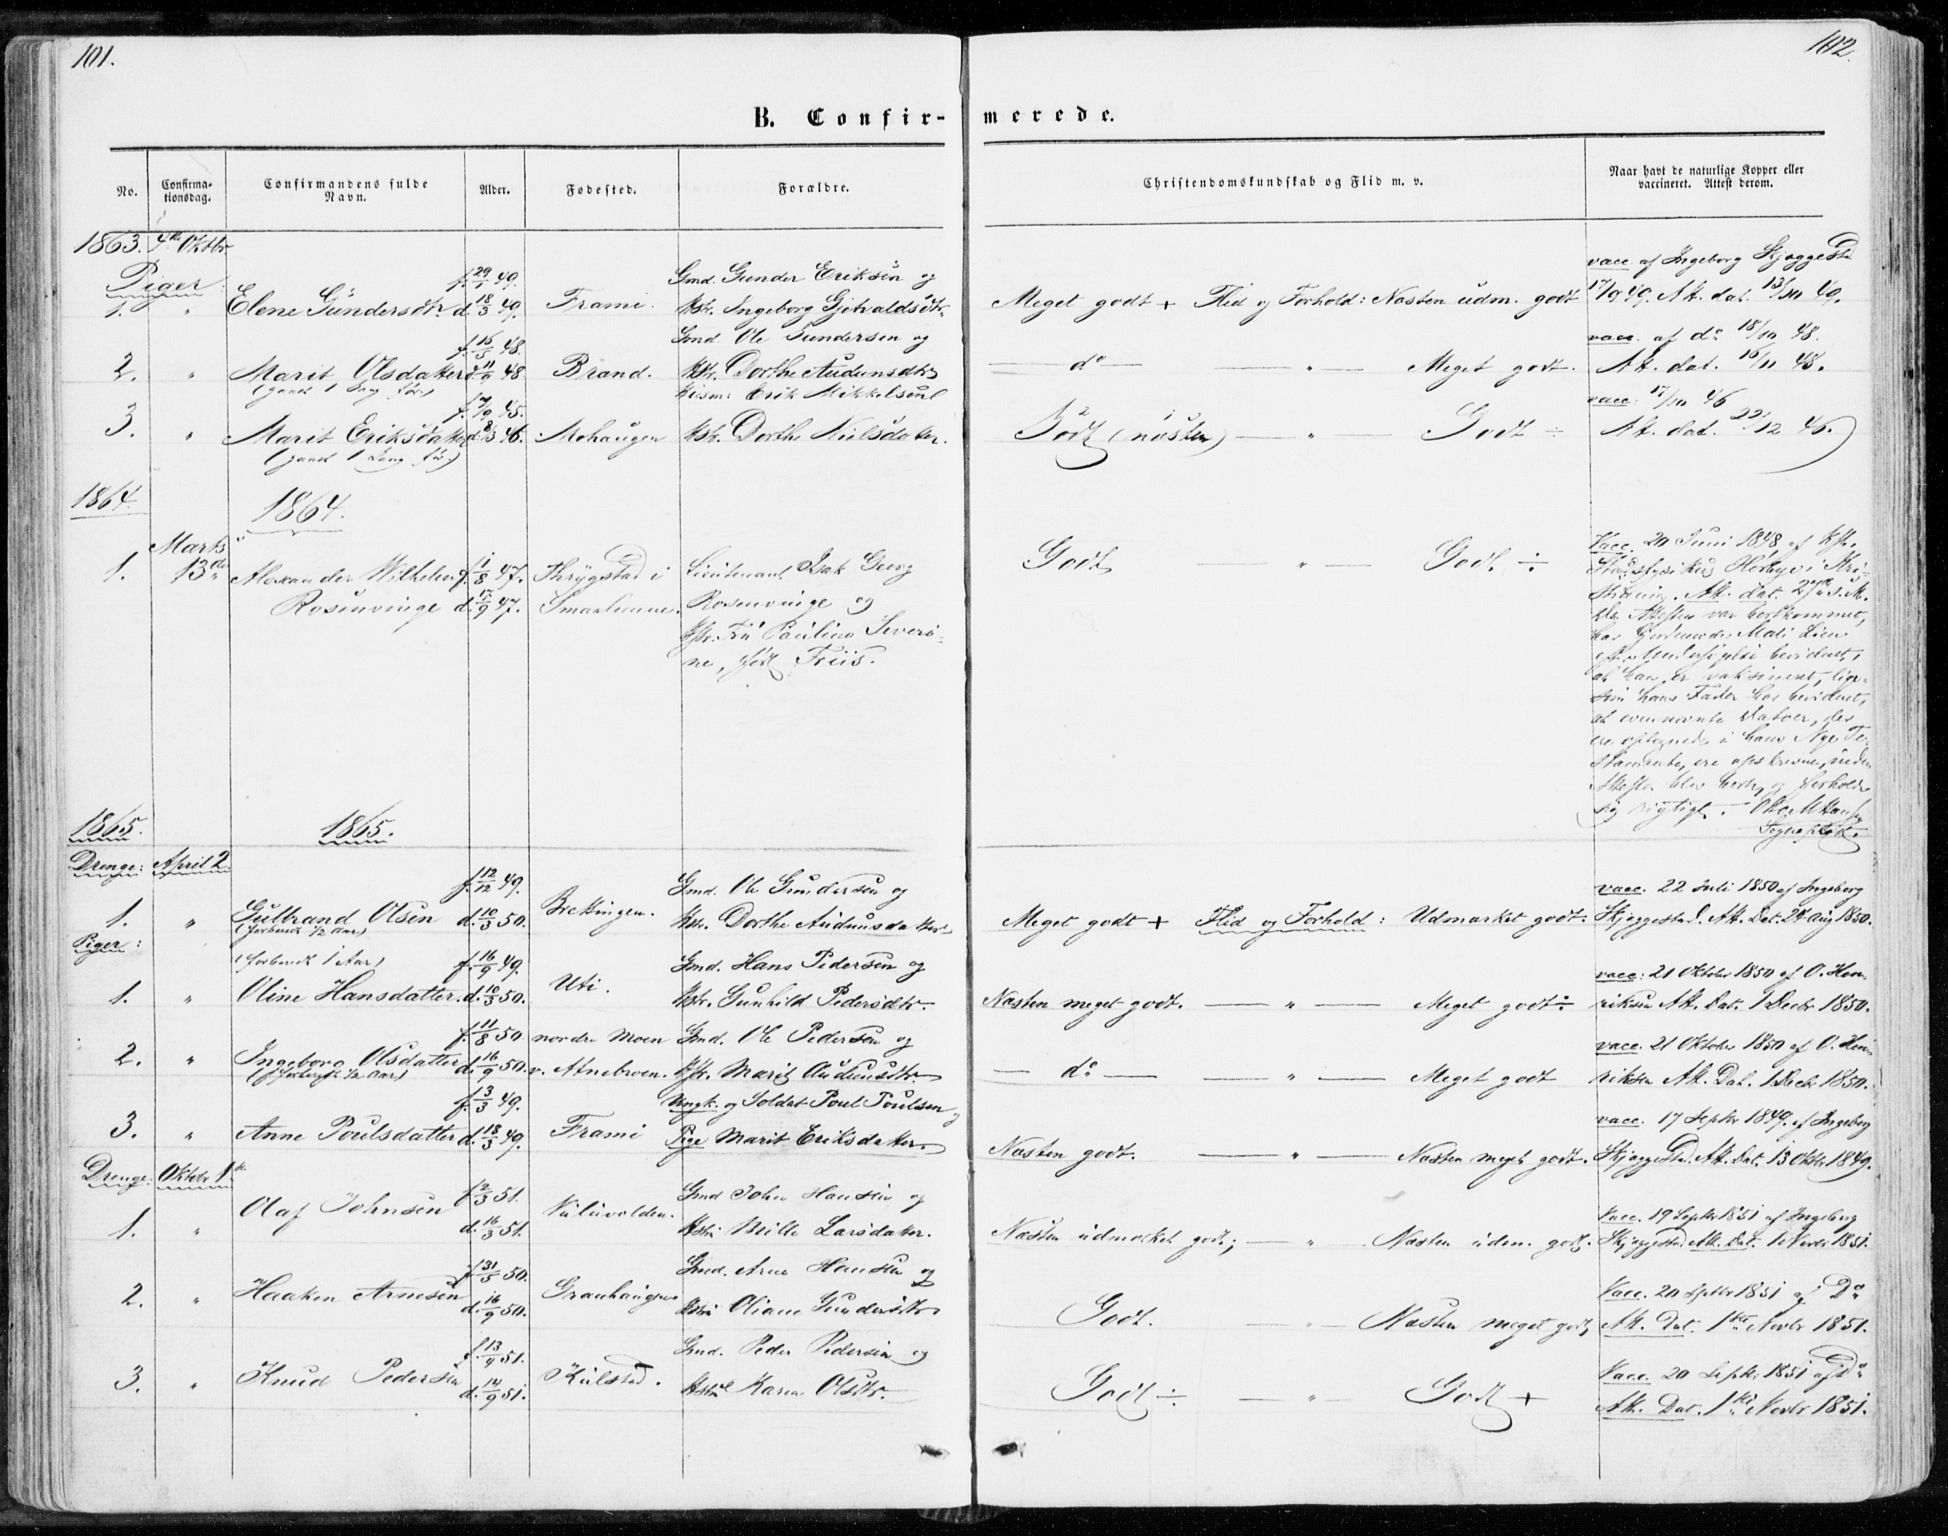 101.
102.
B. Confir-
merede.
No.
Confirma-
tionsdag.
Confirmandens fulde
Navn.
Alder.
Fodested.
Forældre.
Christendomskundskab og Flid m. v.
Naar havt de naturlige Kopper eller
vaccineret. Attest derom.
1863. 4de Oktbr
Piger:
f. 29/1 49. Gmd. Gunder Eriksen og vacc. af Ingeborg Skjæggestad
1. " Elene Gundersdtr. d. 18/3 49. Frami. Kstr. Ingeborg Gjetvaldsdtr. Meget godt + Flid og Forhold: Næsten udm. godt 17/9 49. Att. dat. 13/10 49.
f. 16/5 48. Gmd. Ole Gundersen og vacc. af do 18/10 48.
2. " Marit Olsdatter d. 11/9 48. Brand. Kstr. Dorthe Audunsdtr. — do — — " — Meget godt. Att. dat. 16/11 48.
Husm: Erik Mikkelsen vacc: 17/10 46
3. " Marit Eriksdatter d. 8/3 46. Mohaugen Kstr. Dorthe Nielsdatter. Godt (næsten) — " — Godt ÷ Att. dat. 22/12 46.
1864.
1864.
Marts Vacc. 20 Juni 1848 af
1. 13de Alexander Wilhelm f. 1/8 47. Thrygstad i Lieutenant Isak Georg Godt " — Godt ÷
Rosenvinge d. 17/9 47. Smaalenene. Rosenvinge og Att. dat. 27de s. M.
Fru Pauline Severi- Attesten var bortkommet,
ne, født Friis. har
bevidnet,
at han er vaksineret, lige-
som hans Fader har bevidnet,
at ovennævnte Datoer, der
ere optegnede i hans Nye Te-
stamente, ere afskrevne, inden
Attesten blev borte, og forholde
sig rigtigt.
Sogneprest.
1865.
1865.
Drenge: April 2.
f. 12/12 49. Gmd. Ole Gundersen og vacc. 22 Juli 1850 af Ingeborg
1. " Gulbrand Olsen d. 10/3 50. Brekkingen. Kstr. Dorthe Audunsdatter Meget godt + Flid og Forhold: Udmærket godt: Skjæggestad. Att. Dat. 24 Aug 1850.
(forberedt 1/2 Aar)
Piger:
(forberedt 1 Aar) f. 16/9 49. Gmd. Hans Pedersen og vacc: 21 Oktober 1850 af O. Hen-
1. " Oline Hansdatter. d. 10/3 50. Uti. Kstr. Gunhild Pedersdtr. Næsten meget godt. — " — Meget godt ÷ riksen Att. Dat. 1 Decbr 1850.
f. 11/8 50. nordre Moen Gmd. Ole Pedersen og vacc. 21 Oktober 1850 af O. Hen-
2. " Ingeborg Olsdatter d. 16/9 50. v. Atnebroen. Kstr. Marit Audunsdtr. — do — — " — Meget godt riksen Att. Dat. 1 Decbr 1850.
(forberedt 1/2 Aar)
f. 3/3 49. Ungk. og Soldat Poul Poulsen og vacc. 17 Septbr 1849. af Ingeborg
3. " Anne Poulsdatter d. 18/3 49. Frami Pige Marit Eriksdatter. Næsten godt. — " — Næsten meget godt. Skjæggestad. Att. Dat. 13 Oktbr 1849.
Drenge: Oktober 1ste
f. 2/3 51. Gmd John Hansen og Vacc. 19 Septbr 1851 af Ingeborg
1. " Olaf Johnsen d. 16/3 51. Kstr. Mille Larsdatter. Næsten udmærket godt; — " Næsten udm. godt. Skjæggestad Att. Dat. 1 Novbr 1851.
f. 31/5 50. Gmd. Arne Hansen og Vacc. 20 Septbr 1851 af Do
2. " Haaken Arnesen d. 16/9 50. Granhaugen Kstr. Oliane Gundersdtr. Godt. — " — Næsten meget godt Att. Dat. 1ste Novbr 1851.
f. 13/4 51. Gmd. Peder Pedersen og Vacc. 20 Septbr 1851 af Do
3. " Knud Pedersen d. 14/9 51. Kulstad. Kstr. Karen Olsdtr. Godt ÷ — " Godt + Att. Dat. 1ste Novbr 1851.